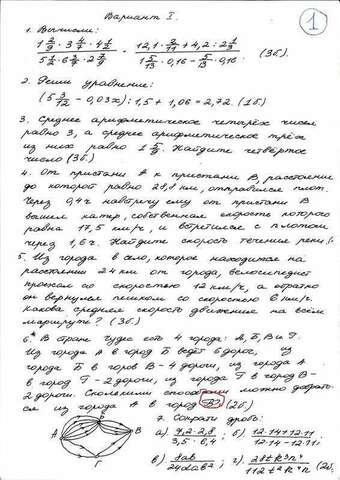 Вариант I.
1
1. Вычисли:
(3б.)
2. Реши уравнение:
(5 3/12 − 0,03х) : 1,5 + 1,06 = 2,72. (1б)
3. Среднее арифметическое четырёх чисел
равно 3, а среднее арифметическое трёх
из них равно Найдите четвёртое
число (3б.)
4. От пристани А к пристани В, расстояние
до которой равно 28,8 км, отправился плот.
Через 0,4ч навстречу ему от пристани В
вышел катер, собственная скорость которого
равна 17,5 км/ч, и встретился с плотом
через 1,6 ч. Найдите скорость течения реки.
5. Из города в село, которое находится на
расстоянии 24 км от города, велосипедист
проехал со скоростью 12 км/ч, а обратно
он вернулся пешком со скоростью 6 км/ч.
Какова средняя скорость движения на всём
маршруте? (3б.)
6.* В стране Чудес есть 4 города: А, Б, В и Г.
Из города А в город Б ведёт 6 дорог, из
города Б в город В - 4 дороги, из города А
в город Г - 2 дороги, из города Г в город В -
2 дороги. Сколькими способами можно добрать-
ся из города А в город В? (2б.)
Б
А
В
Г
7. Сократи дробь:
а) 4,2·2,8 / 3,5·6,4 ; б) 12·14+12·11 / 12·14−12·11 ;
в) г) (2б.